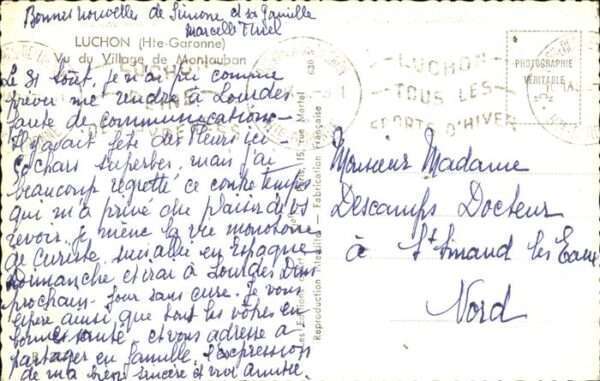 Bonnes nouvelles de Simone et sa famille
Marcelle
LUCHON (Hte-Garonne)
Vu du Village de Montauban
Le 31 Août, je n'ai pu comme
prévu me rendre à Lourdes
faute de communications
Il y avait fête des Fleurs ici
chars superbes, mais j'ai
beaucoup regretté ce contre temps
qui m'a privé du plaisir de vs
revoir. je mène la vie monotone
de curiste. suis allé en Espagne
Dimanche et irai à Lourdes Dim
prochain. Jour sans cure. Je vous
espère ainsi que tous les vôtres en
bonne santé. et vous adresse à
partager en famille, l'expression
de ma bien sincère et vive amitié.
Reproduction Interdite - Fabrication Française
15, rue Martel
LUCHON
TOUS LES
SPORTS D'HIVER
PHOTOGRAPHIE
VÉRITABLE
Monsieur Madame
Descamps Docteur
à St Amand les Eaux
Nord